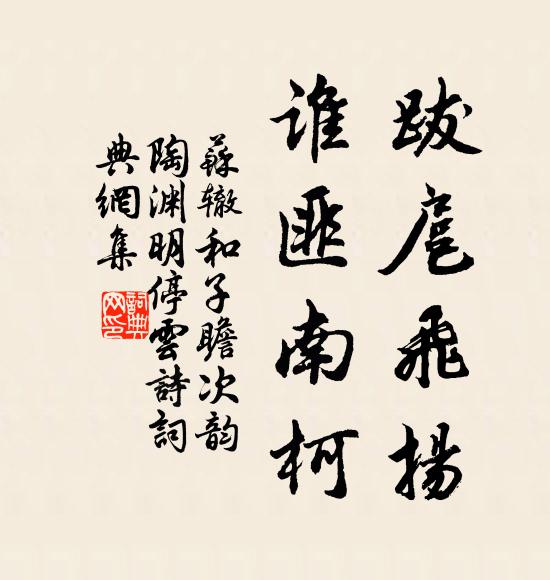 跋扈飛揚
谁匪南柯
蘇辙和子瞻次韵
陶渊明停雲詩詞
典網集
詞典
网印